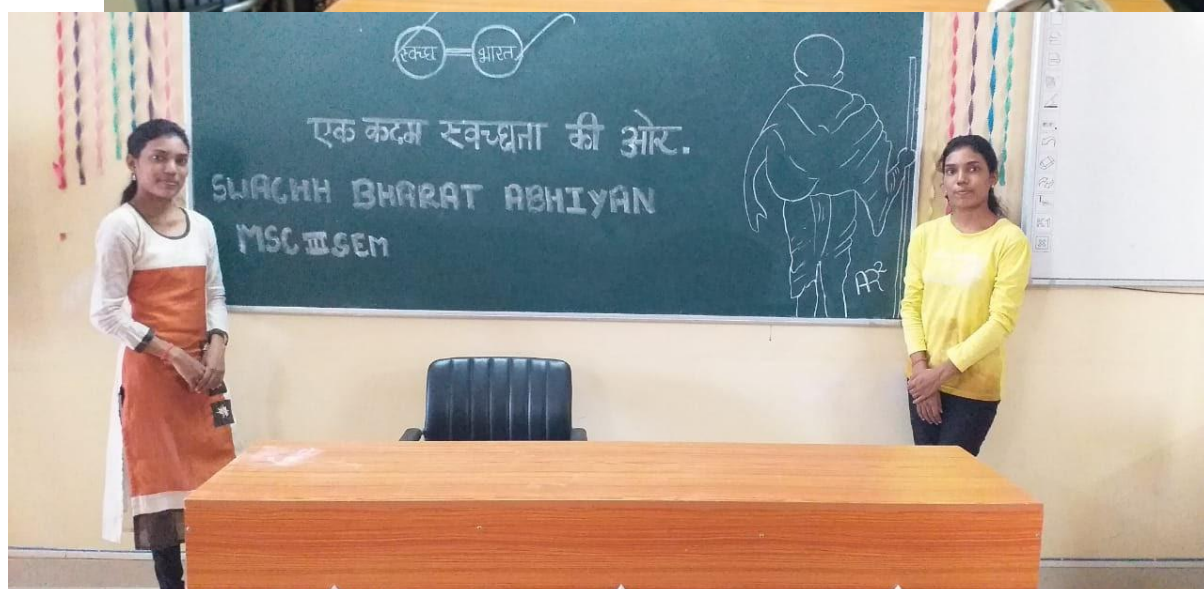 स्वच्छ भारत
एक कदम स्वच्छता की ओर.
SWACHH BHARAT ABHIYAN
MSC III SEM
AR²